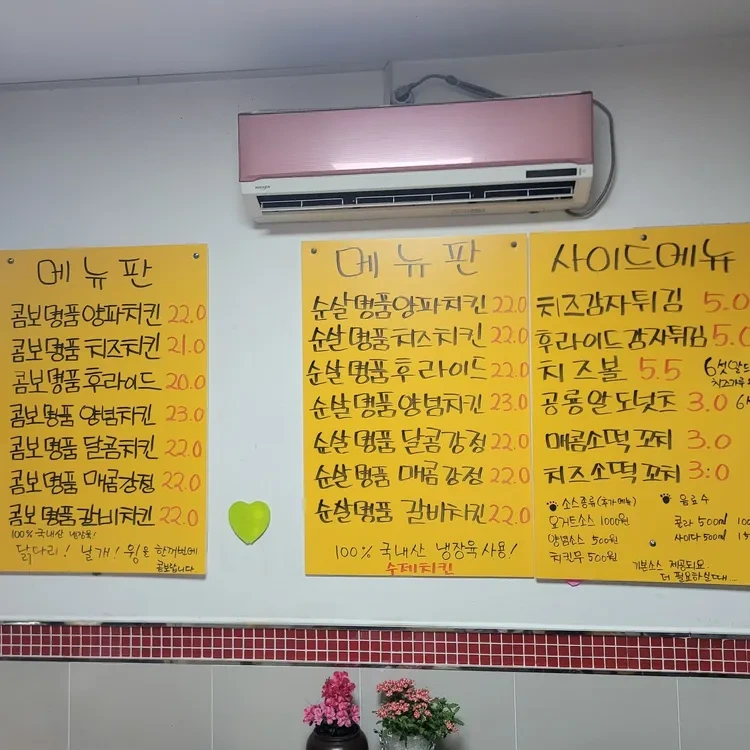 메뉴판
콤보명품양파치킨 22.0
콤보명품치즈치킨 21.0
콤보명품후라이드 20.0
콤보명품 양념치킨 23.0
콤보명품 달콤치킨 22.0
콤보명품 매콤강정 22.0
콤보명품갈비치킨 22.0
100% 국내산 냉장육!
닭다리! 날개! 윙을 한꺼번에
메뉴판
순살명품양파치킨 22.0
순살명품치즈치킨 22.0
순살명품후라이드 22.0
순살명품양념치킨 23.0
순살명품 달콤강정 22.0
순살명품 매콤강정 22.0
순살명품 갈비치킨 22.0
100% 국내산 냉장육사용!
수제치킨
사이드메뉴
치즈감자튀김 5.0
후라이드감자튀김 5.0
치즈볼 5.5
공룡알도넛츠 3.0
매콤소떡꼬치 3.0
치즈소떡꼬치 3:0
소스종류(추가메뉴)
요거트소스 1000원
양념소스 500원
치킨무 500원
음료수
콜라 500ml
사이다 500ml
기본소스 제공되요
더 필요하실때...